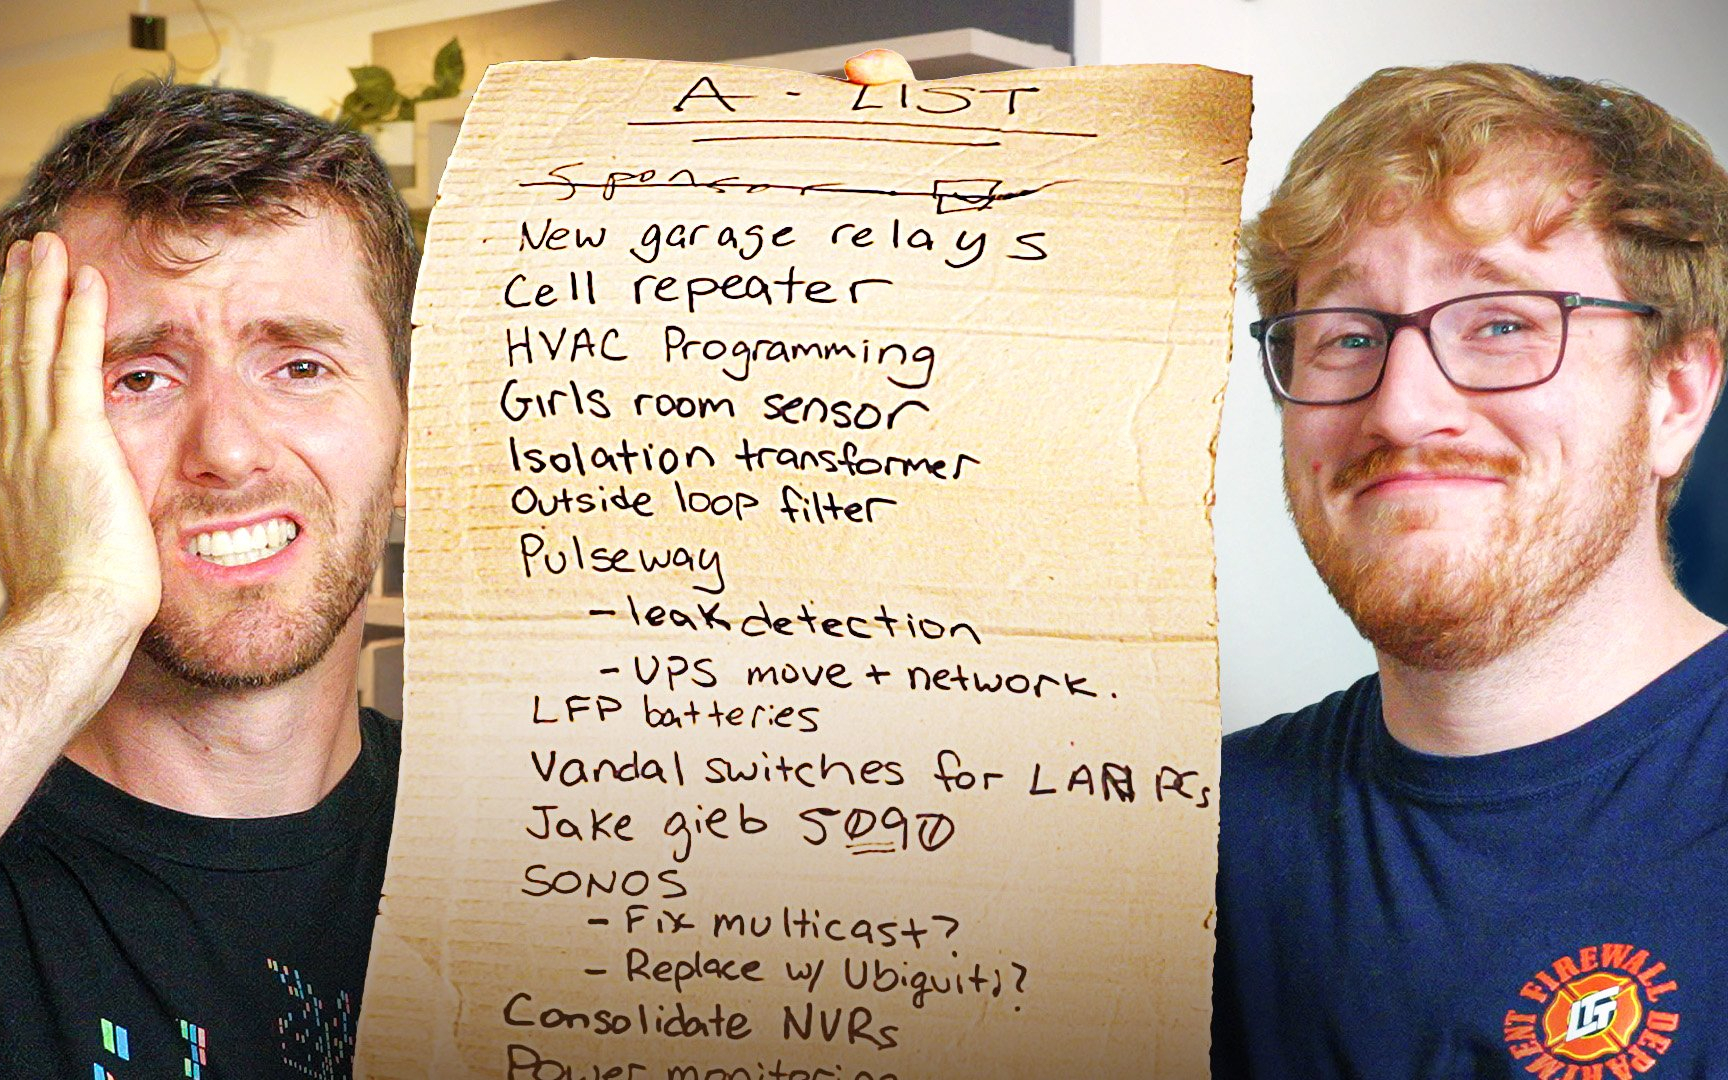 A - LIST
Sponsor
New garage relays
Cell repeater
HVAC Programming
Girls room sensor
Isolation transformer
Outside loop filter
Pulseway
- leak detection
- UPS move + network.
LFP batteries
Vandal switches for LAN PCs
Jake gieb 5090
SONOS
- Fix multicast?
- Replace w/ Ubiquiti?
Consolidate NVRs
Power monitoring
FIREWALL DEPARTMENT
LTT